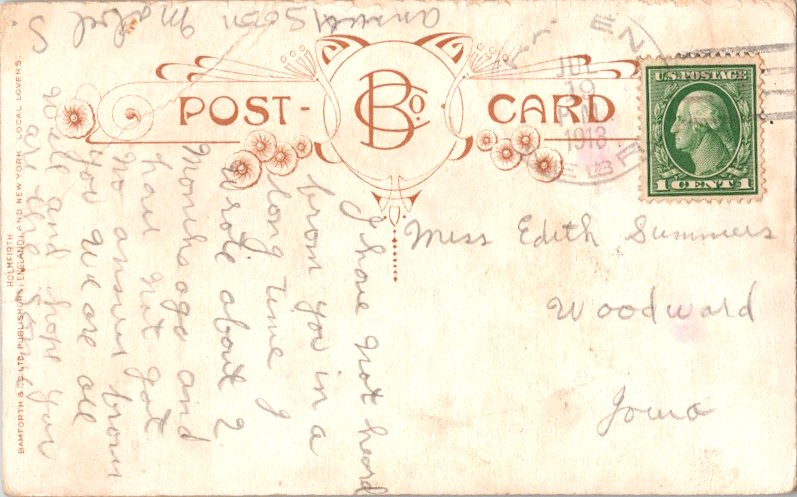 POST-CARD
B Co.
JUL
10
1913
NEBR.
U.S. POSTAGE
1 CENT 1
Miss Edith Summers
Woodward
Iowa
I have not heard
from you in a
long time I
wrote about 2
Months ago and
have not got
no answer from
you We are all
well and hope you
are the same
answer soon
Mabel S.
HOLMFIRTH
BAMFORTH & CO LTD. PUBLISHERS, (ENGLAND), AND NEW YORK. LOCAL LOVERS